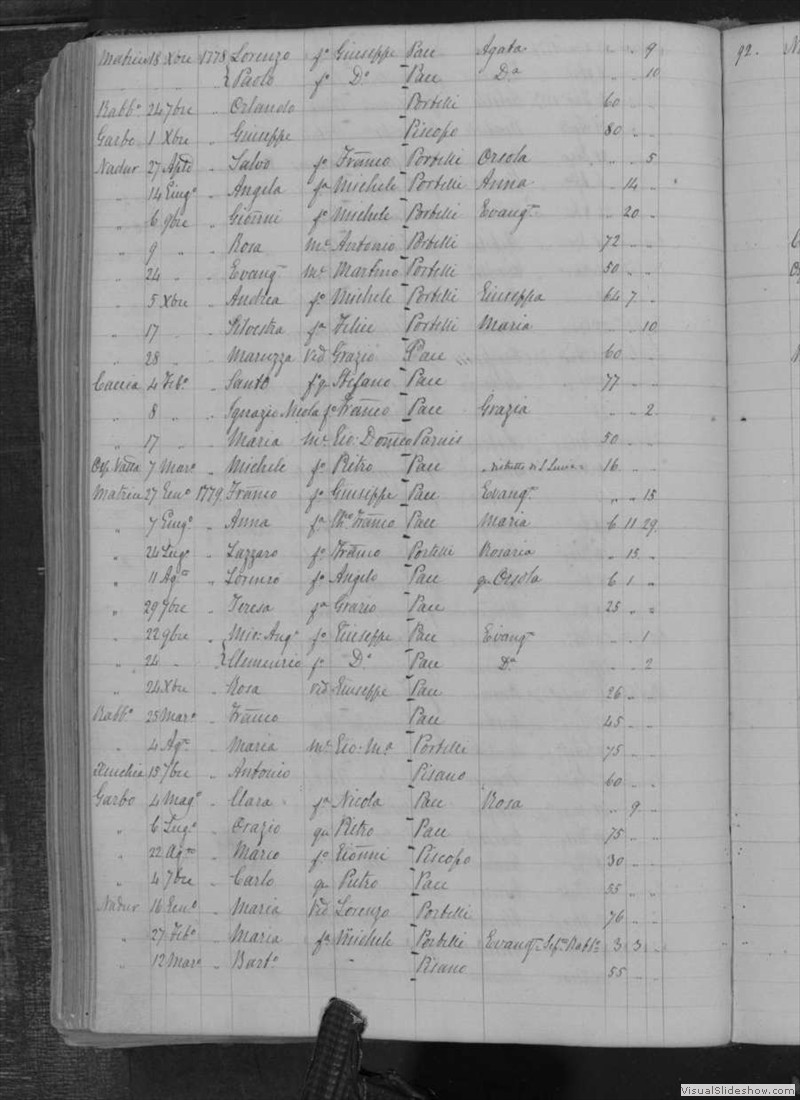 Matrice 18 Xbre 1778 Lorenzo fo Giuseppe Pace Agata " " 9
" " { Paolo fo Do Pace Da " " 10
Rabbo 24 7bre " Orlando Portelli 60 " "
Garbo 1 Xbre " Giuseppe Piscopo 80 " "
Nadur 27 " Salvo fo Franco Portelli Orsola " " 5
" 14 Giugo " Angela fa Michele Portelli Anna " 14 "
" 6 9bre " Gionni fo Michele Portelli Evanga " 20 "
" 9 " " Rosa me Antonio Portelli 72 " "
" 24 " " Evanga me Martino Portelli 50 " "
" 5 Xbre " Andrea fo Michele Portelli Giuseppa 64 7 "
" 17 " " Silvestra fa Felice Portelli Maria " " 10
" 28 " " Maruzza Vid Grazio Pace 60 " "
Caccia 4 Febo " Santo Stefano Pace 77 " "
" 8 " " Ignazio Nicola fo Franco Pace Grazia " " 2
" 17 " " Maria me Gio: Domco Parnis 50 " "
7 Maro " Michele fo Pietro Pace 16 " "
Matrice 27 Geno 1779 Franco fo Giuseppe Pace Evanga " " 15
" 7 Giugo " Anna fa Franco Pace Maria 6 11 29
" 24 Lugo " Lazzaro fo Franco Portelli Rosaria " 15 "
" 11 Ago " Lorenzo fo Angelo Pace qu Orsola 6 1 "
" 29 7bre " Teresa fa Grazio Pace 25 " "
" 22 9bre " { Mic: Ango fo Giuseppe Pace Evanga " " 1
" 24 " " { fo Do Pace Da " " 2
" 24 Xbre " Rosa vid Giuseppe Pace 26 " "
Rabbo 25 Maro " Franco Pace 45 " "
" 4 Ago " Maria me Gio: Ma Portelli 75 " "
15 7bre " Antonio Pisano 60 " "
Garbo 4 Mago " Clara fa Nicola Pace Rosa " 9 "
" 6 Lugo " Orazio qu Pietro Pace 75 " "
" 22 Ago " Marco fo Gionni Piscopo 30 " "
" 4 7bre " Carlo qu Pietro Pace 55 " "
Nadur 16 Geno " Maria Vid Lorenzo Portelli 76 " "
" 27 Febo " Maria fa Michele Portelli Evanga 3 3 "
" 12 Maro " Barto " Pisano 55 " "
92.
VisualSlideshow.com